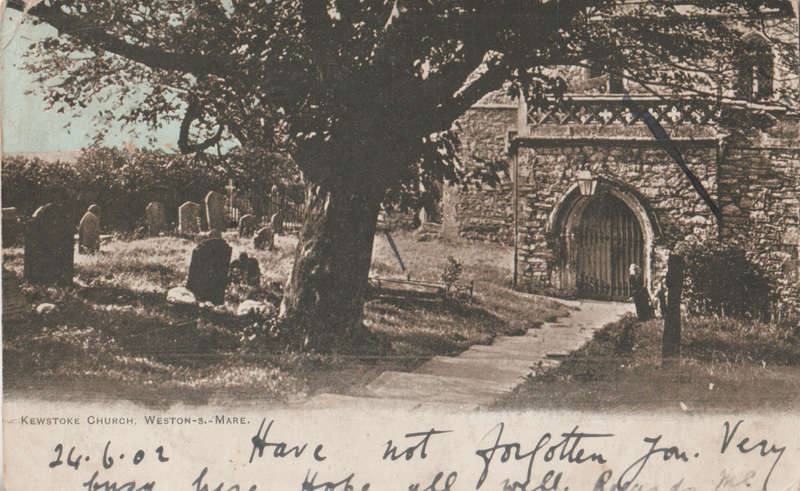 Kewstoke Church, Weston-S.-Mare.
24.6.02 Have not forgotten you. Very
busy here Hope all well. Regards